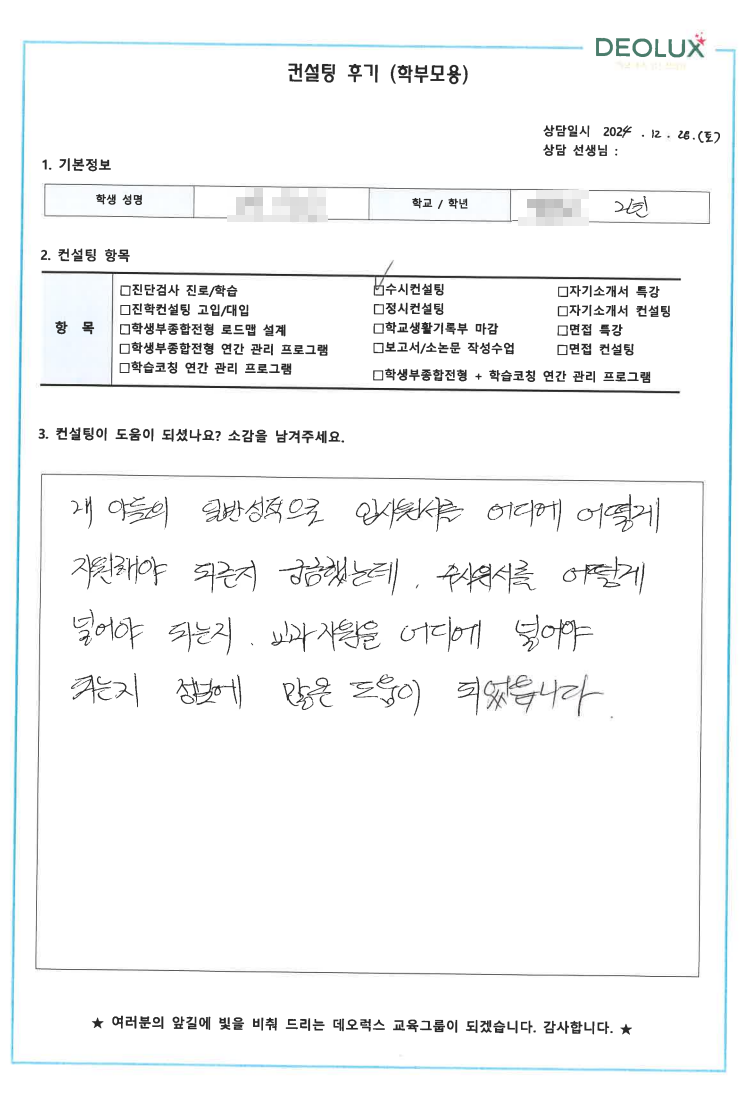 DEOLUX
컨설팅 후기 (학부모용)
상담일시 2024 . 12 . 28 . (토)
상담 선생님 :
1. 기본정보
학생 성명
학교 / 학년 2학년
2. 컨설팅 항목
항 목
□진단검사 진로/학습 □수시컨설팅 □자기소개서 특강
□진학컨설팅 고입/대입 □정시컨설팅 □자기소개서 컨설팅
□학생부종합전형 로드맵 설계 □학교생활기록부 마감 □면접 특강
□학생부종합전형 연간 관리 프로그램 □보고서/소논문 작성수업 □면접 컨설팅
□학습코칭 연간 관리 프로그램
□학생부종합전형 + 학습코칭 연간 관리 프로그램
3. 컨설팅이 도움이 되셨나요? 소감을 남겨주세요.
제 아들의 일반성적으로 입시원서를 어디에 어떻게
지원해야 되는지 궁금했는데. 수시원서를 어떻게
넣어야 되는지. 교과지원을 어디에 넣어야
되는지 정보에 많은 도움이 되었습니다.
★ 여러분의 앞길에 빛을 비춰 드리는 데오럭스 교육그룹이 되겠습니다. 감사합니다. ★